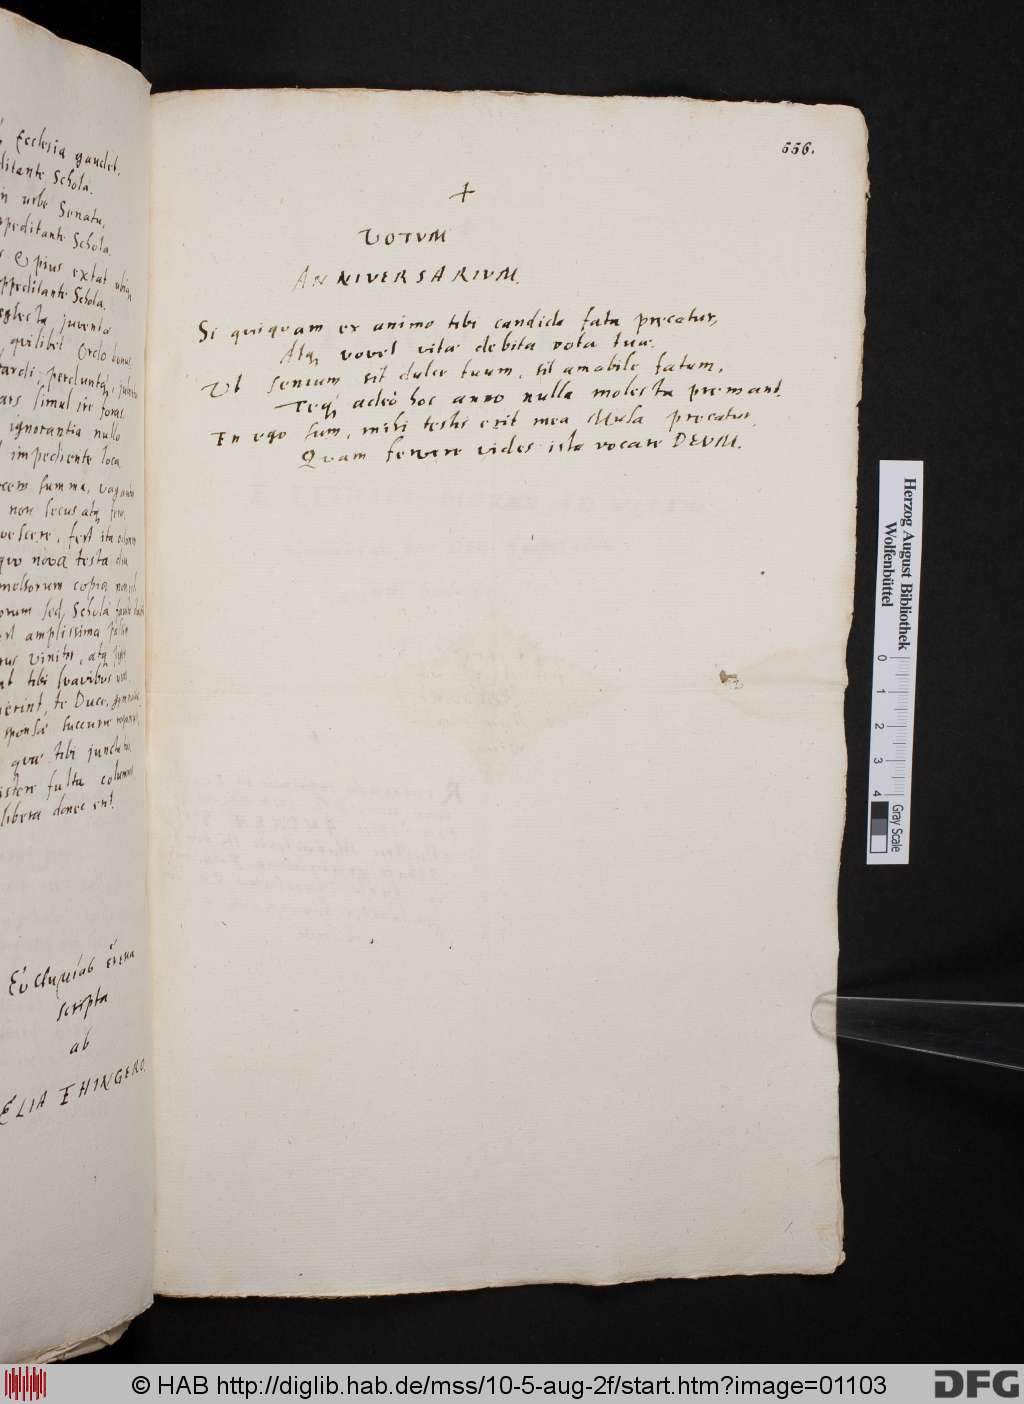 Ecclesia gaudet.
ditante Schola.
in urbe Senatu,
ppeditante Schola.
Q pius extat ubiq
ppeditante Schola.
neglecta juventa
quilibet Ordo bonus.
tardi, perduntq,
ars simul ire foras.
ignorantia nullo
impediente loca.
summa,
non secus atq
vescere, fert ita
quo nova testa diu
copia
orum sed, Schola
est amplissima
vinitor, atq
tibi suavibus
erint, te Duce,
sponsa succurre
quae tibi juncta
sistere fulta columnis
libera donec erit.
scripta
ab
ELIA EHINGERO.
556.
+
VOTUM
ANNIVERSARIUM.
Si quiquam ex animo tibi candida fata precatur,
Atq vovet vitae debita vota tuae.
Ut senium sit dulce tuum, sit amabile fatum,
Teq adeò hoc anno nulla molesta premant.
En ego sum, mihi testis erit mea Musa precatur,
Quam fervere vides ista vocare DEUM.
Herzog August Bibliothek
Wolfenbüttel
0 1 2 3 4
Gray Scale
© HAB http://diglib.hab.de/mss/10-5-aug-2f/start.htm?image=01103
DFG